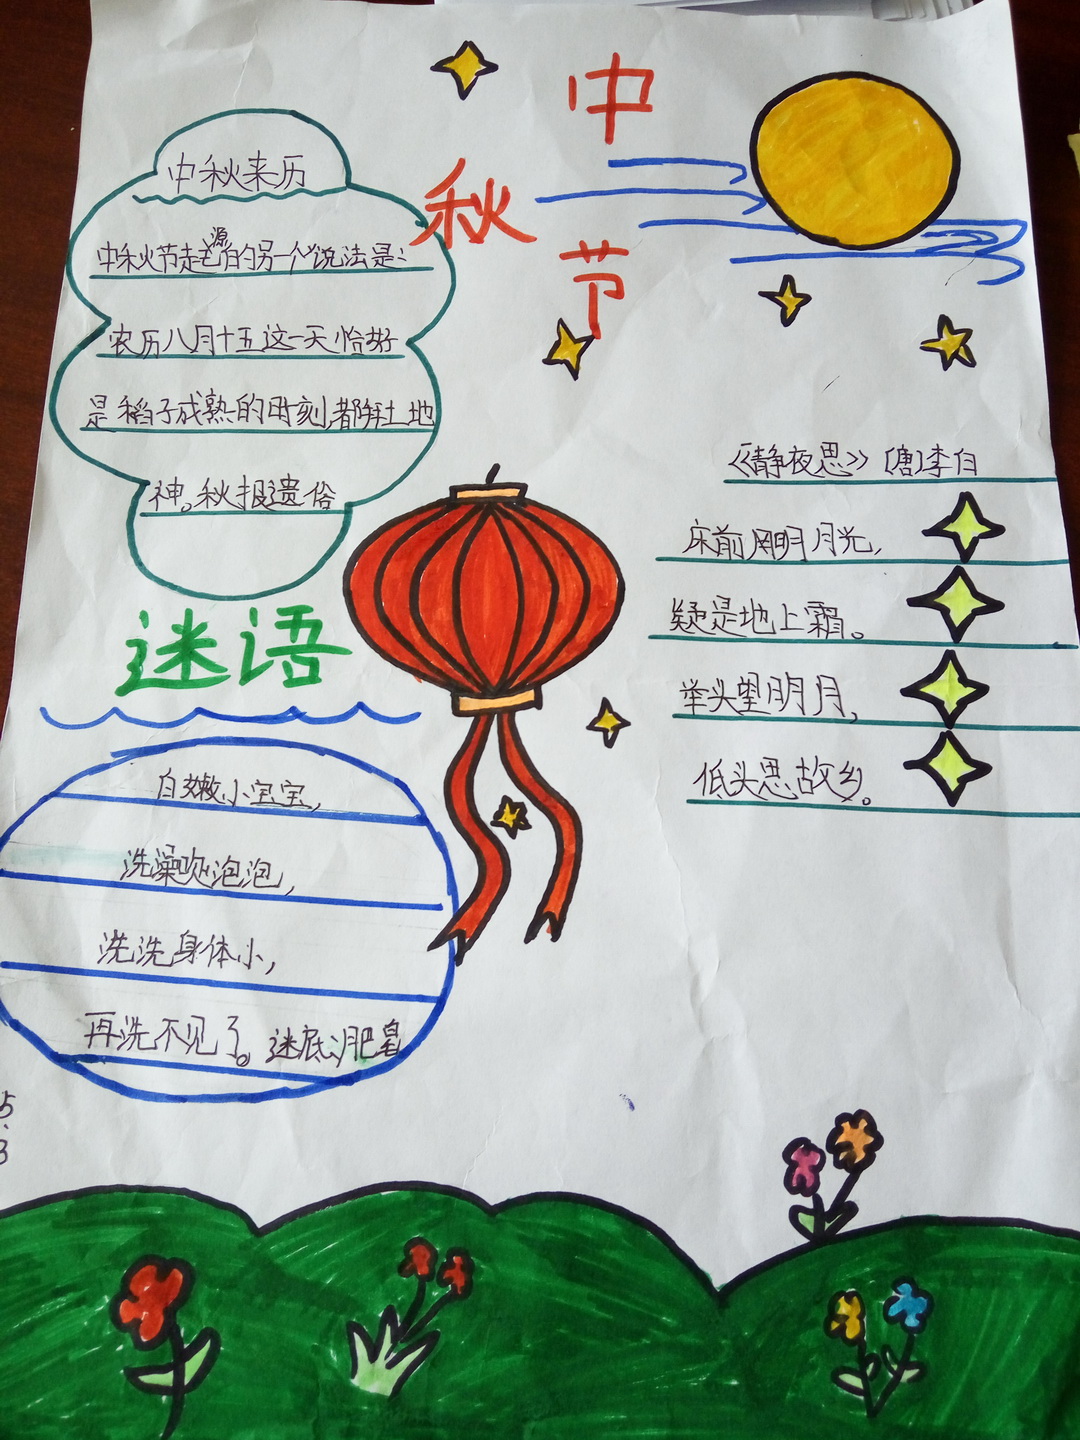 中
秋
节
中秋来历
中秋节起源的另一个说法是:
农历八月十五这一天恰好
是稻子成熟的时刻都拜土地
神。秋报遗俗
《静夜思》〔唐〕李白
床前明月光,
疑是地上霜。
举头望明月,
低头思故乡。
迷语
白嫩小宝宝,
洗澡吹泡泡,
洗洗身体小,
再洗不见了。迷底:肥皂
5.3